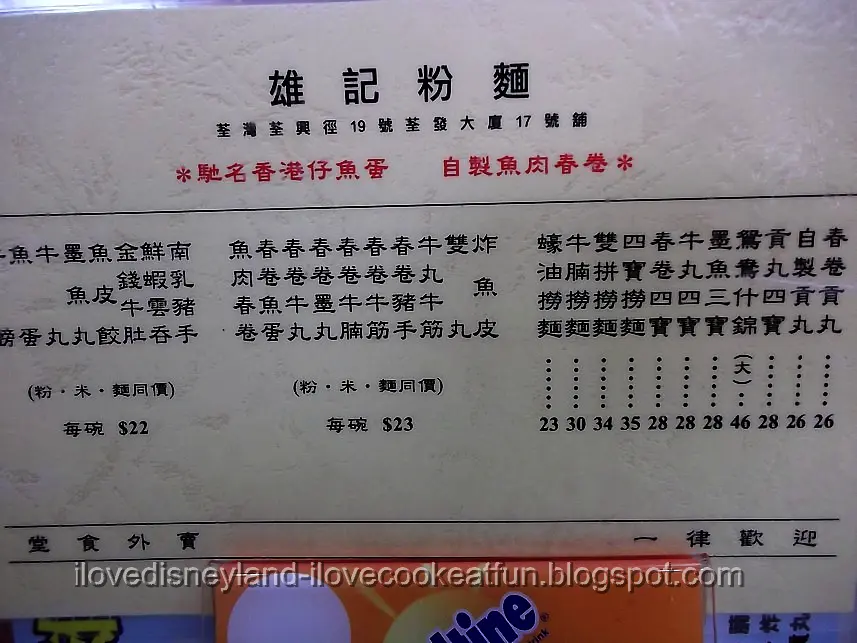 雄記粉麵
荃灣荃興徑19號荃發大廈17號舖
*馳名香港仔魚蛋 自製魚肉春卷*
春卷貢丸......26
自製貢丸......26
貢丸四寶......28
鴛鴦什錦(大)..46
墨魚三寶......28
牛丸四寶......28
春卷四寶......28
四寶撈麵......35
雙拼撈麵......34
牛腩撈麵......30
蠔油撈麵......23
炸魚皮
雙丸
牛丸牛筋
春卷豬手
春卷牛筋
春卷牛腩
春卷墨丸
春卷牛丸
春卷魚蛋
魚肉春卷
(粉·米·麵同價)
每碗 $23
南乳豬手
鮮蝦雲吞
金錢牛肚
魚皮餃
墨丸
牛丸
魚蛋
(粉·米·麵同價)
每碗 $22
堂食外賣 一律歡迎
ilovedisneyland-ilovecookeatfun.blogspot.com